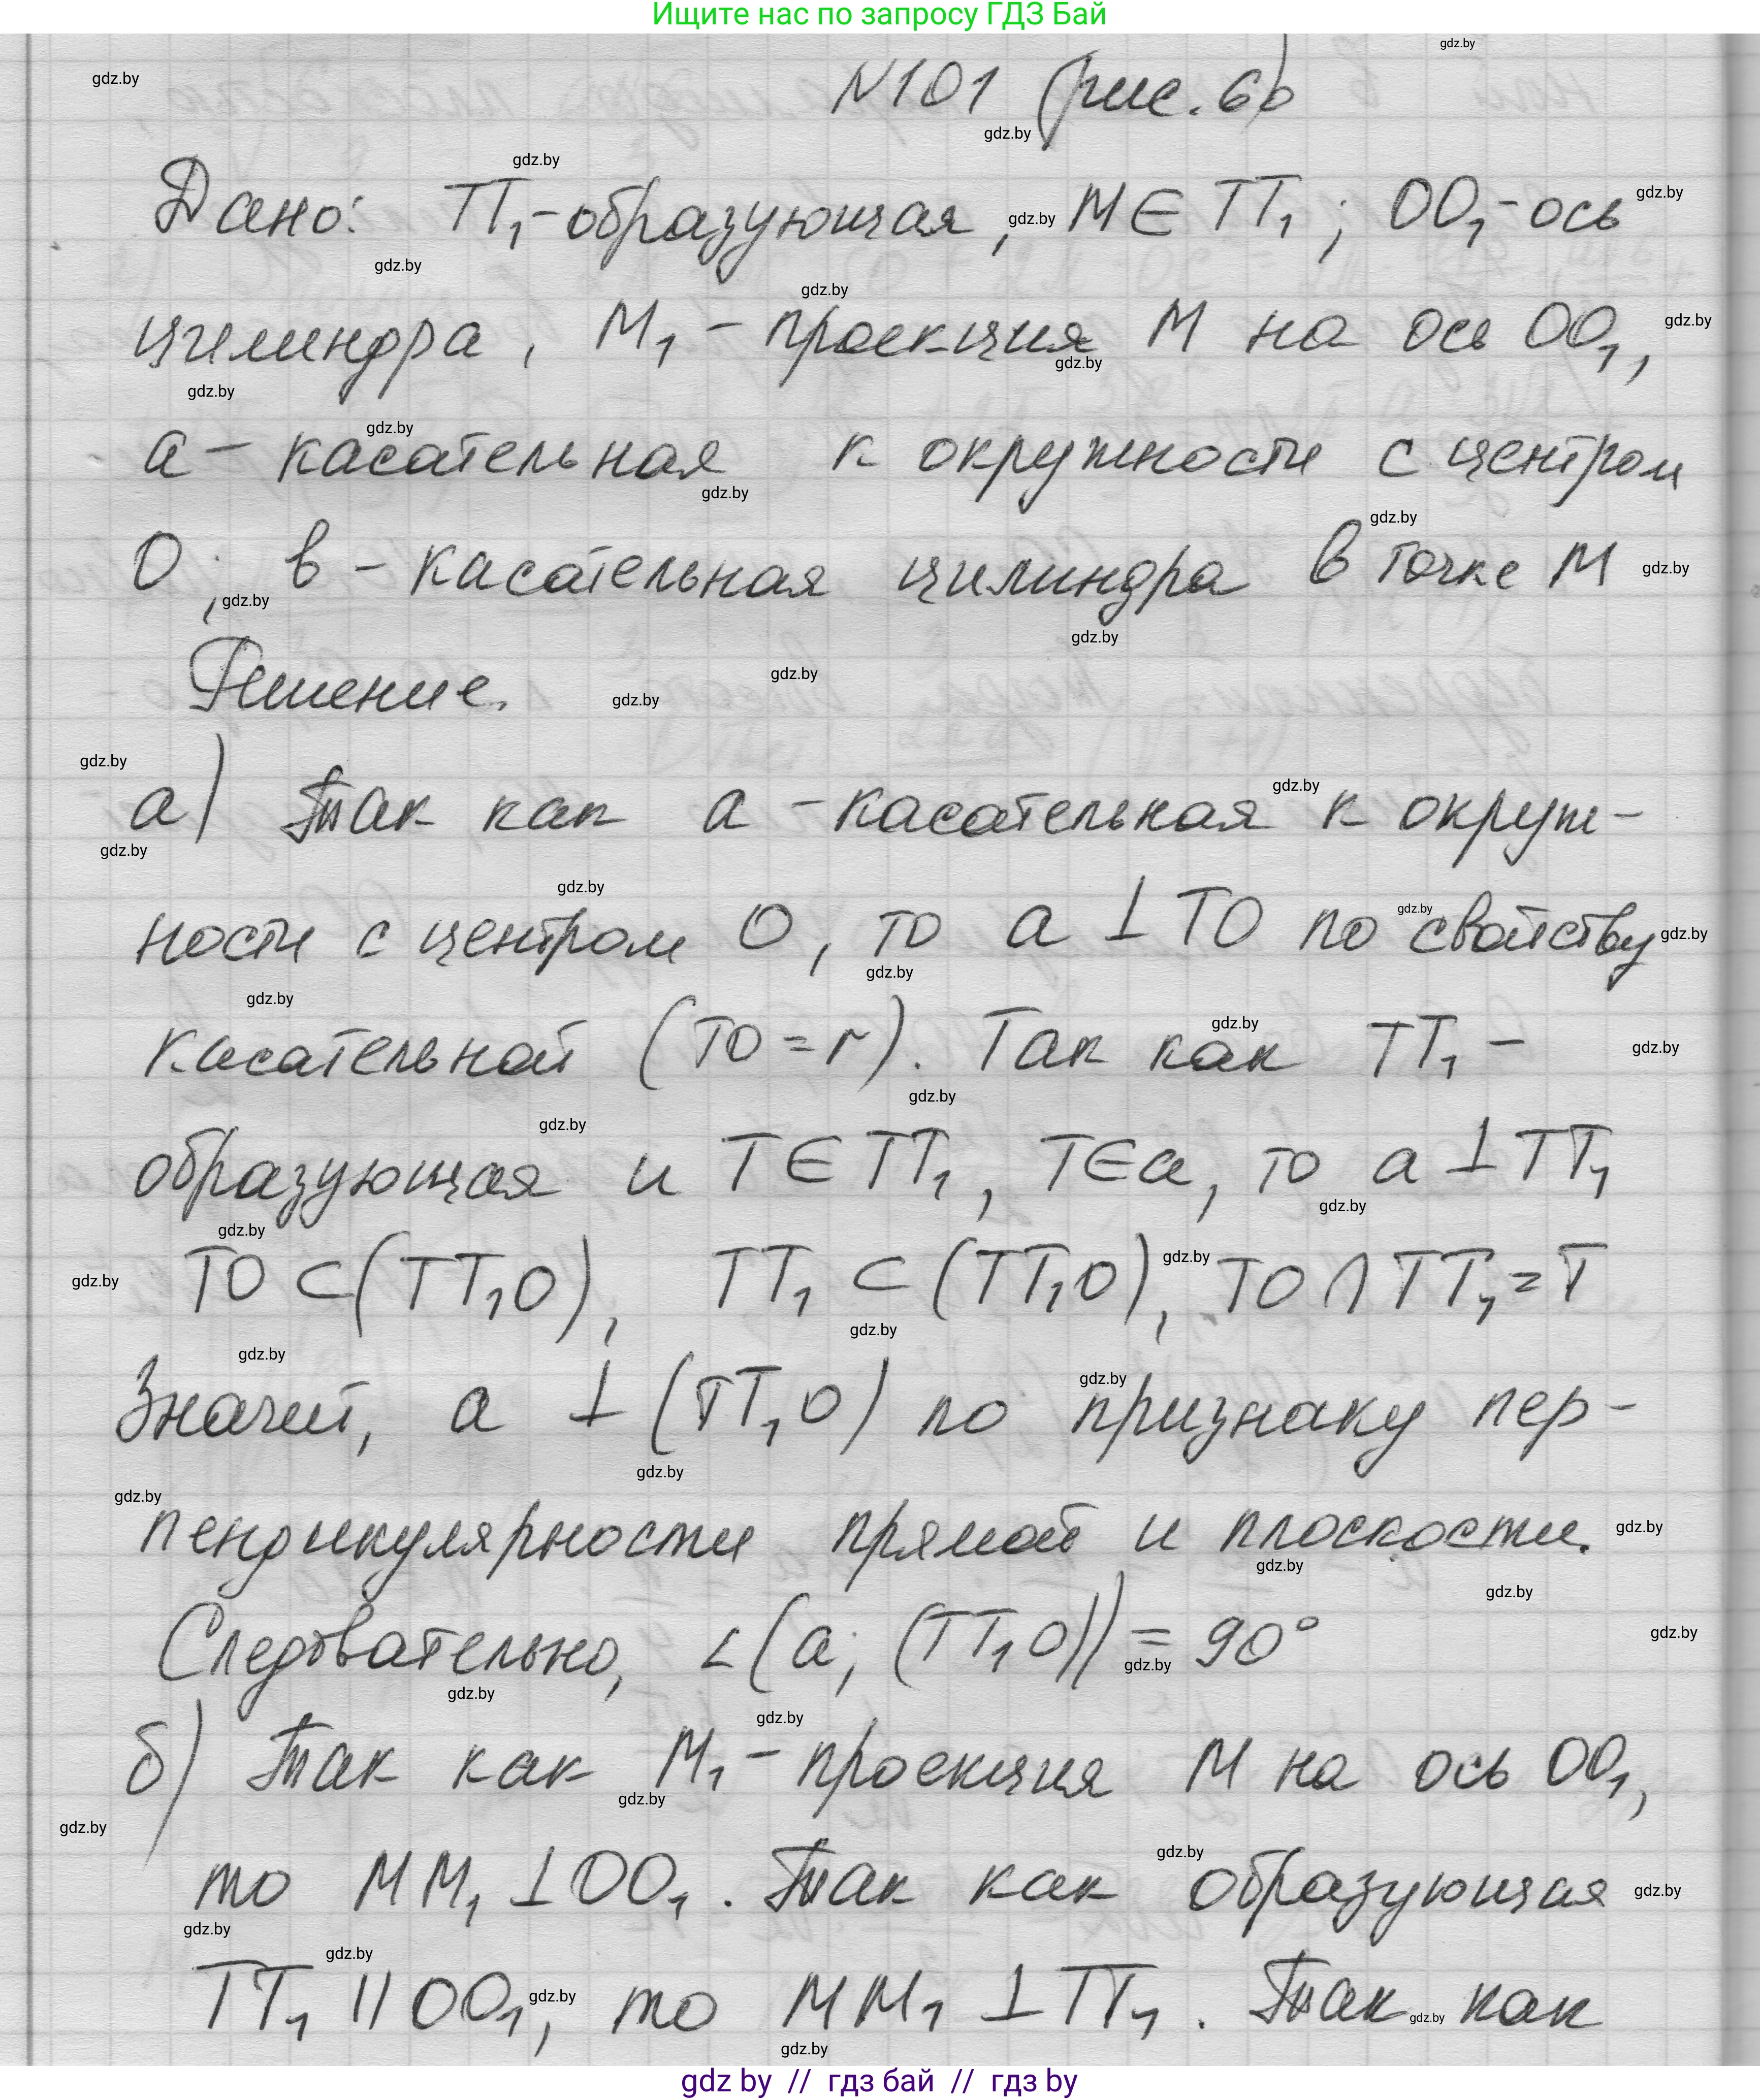 Ищите нас по запросу ГДЗ Бай
№101 (рис. 6)
Дано: TT₁-образующая, M∈TT₁; OO₁-ось
цилиндра, M₁ - проекция M на ось OO₁,
a - касательная к окружности с центром
O; в - касательная цилиндра в точке M
Решение.
а) Так как a - касательная к окруж-
ности с центром O, то a ⊥ TO по свойству
касательной (TO = r). Так как TT₁ -
образующая и T∈TT₁, T∈a, то a ⊥ TT₁
TO ⊂ (TT₁O), TT₁ ⊂ (TT₁O), TO ∩ TT₁ = T
Значит, a ⊥ (TT₁O) по признаку пер-
пендикулярности прямой и плоскости.
Следовательно, ∠(a; (TT₁O)) = 90°
б) Так как M₁ - проекция M на ось OO₁,
то MM₁ ⊥ OO₁. Так как образующая
TT₁ || OO₁, то MM₁ ⊥ TT₁. Так как
gdz by // гдз бай // гдз by